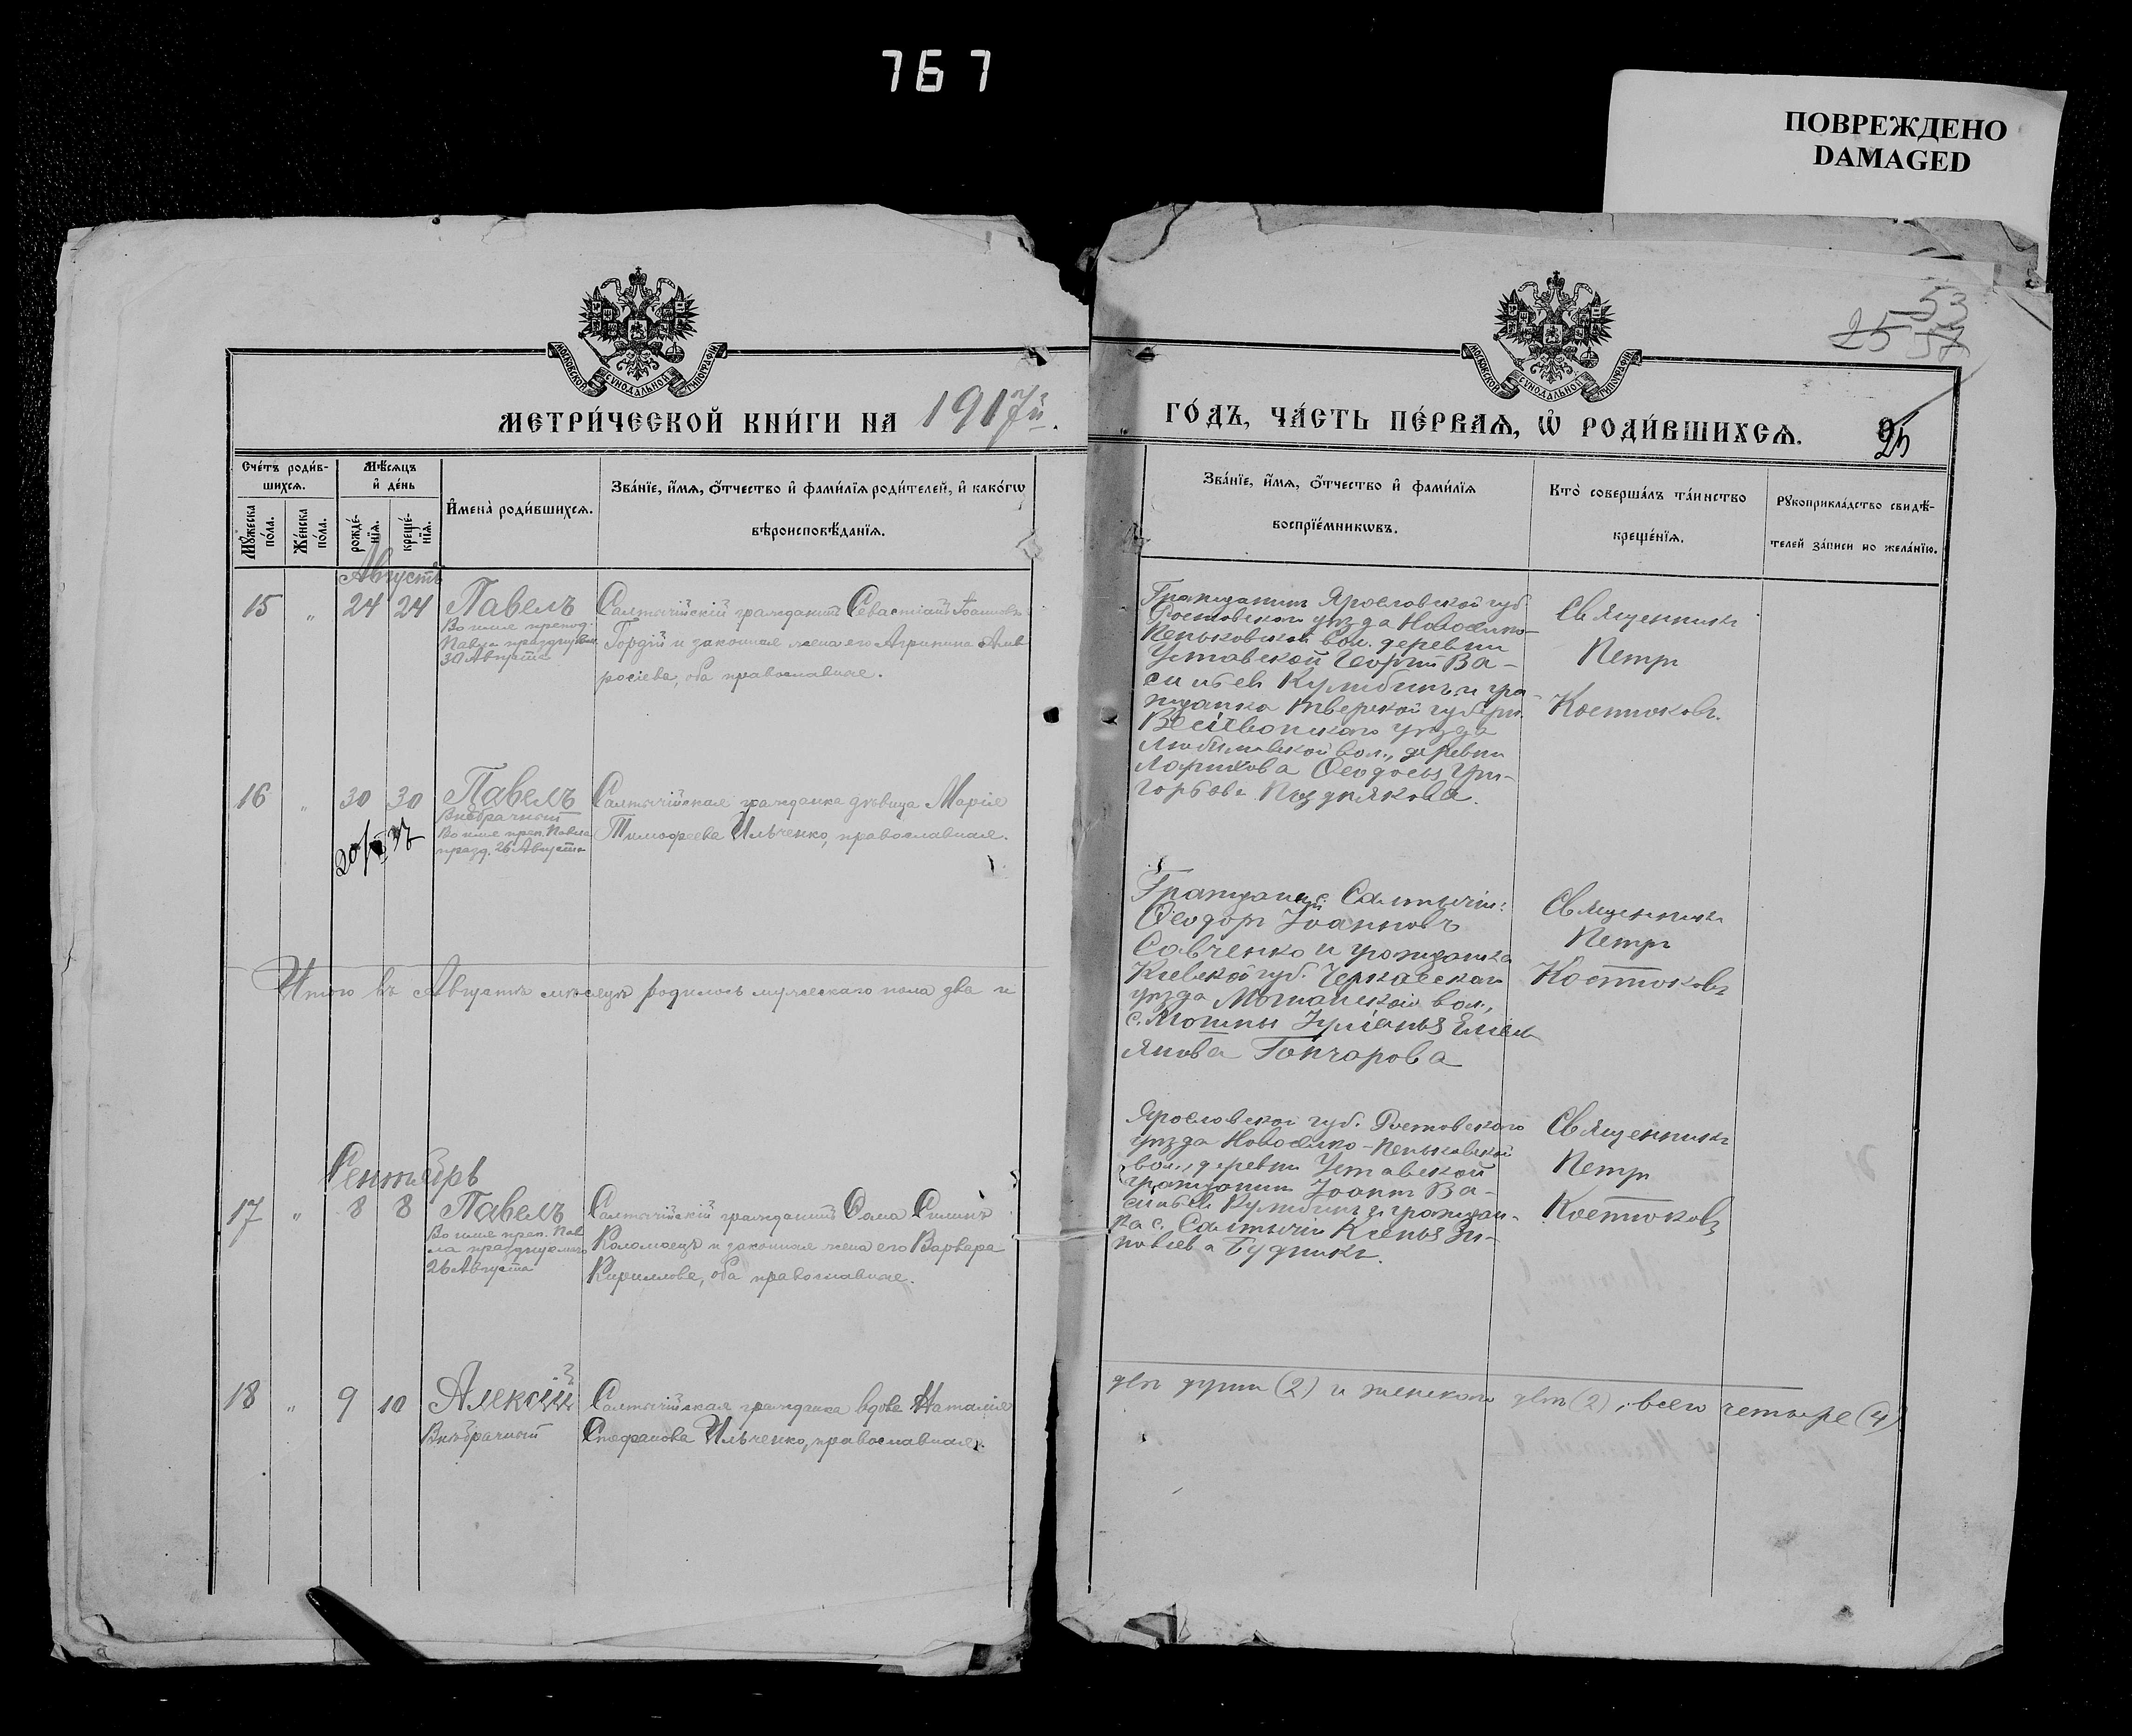 767
ПОВРЕЖДЕНО
DAMAGED
МОСКОВСКОЙ СѴНОДАЛЬНОЙ ТИПОГРАФІИ
МОСКОВСКОЙ СѴНОДАЛЬНОЙ ТИПОГРАФІИ
53
25 57
МЕТРИ́ЧЕСКОЙ КНИ́ГИ НА 1917й.
ГО́ДЪ, ЧА́СТЬ ПЕ́РВАѦ, Ѽ РОДИ́ВШИХСѦ.
25
Сче́тъ роди́в-
шихсѧ.
Мѣ́сѧцъ
и҆ де́нь
И҆мена̀ роди́вшихсѧ.
Зва́нїе, и҆́мѧ, ѻ҆́тчество и҆ фами́лїѧ роди́телей, и҆ како́гѡ
вѣроисповѣ́данїѧ.
Мꙋ́жеска
по́ла.
Же́нска
по́ла.
рожде́-
нїѧ.
креще́-
нїѧ.
Зва́нїе, и҆́мѧ, ѻ҆́тчество и҆ фами́лїѧ
воспрїе́мникѡвъ.
Кто̀ соверша́лъ та́инство
креще́нїѧ.
Рꙋкоприкла́дство свидѣ́-
телей за́писи по жела́нїю.
Августъ
15 " 24 24 Павелъ
Во имя препод.
Павла празднуем.
30 Августа
Салтычійскій гражданинъ Севастіанъ Іоанновъ
Гордій и законная жена его Агрипина Амв
росіева, оба православные.
Гражданинъ Ярославской губ.
Ростовскаго уѣзда Новоселко-
Пеньковской вол. деревни
Уставской Георгій Ва-
сильевъ Кулибинъ и гра-
жданка Тверской губерн.
Весьегонскаго уѣзда
Любимовской вол., деревни
Феодосья Гри-
горьева Позднякова.
Священникъ
Петръ
Костюковъ.
16 " 30 30 Павелъ
Внѣбрачный
Во имя преп. Павла
празд. 26 Августа
Салтычійская гражданка дѣвица Марія
Тимофеева Ильченко, православная.
Гражданин с. Салтычіи:
Феодоръ Іоанновъ
Савченко и гражданка
Кіевской губ. Черкасскаго
уѣзда Мошанской вол.,
с. Мошны Іуліанья Емель
янова Гончарова
Священникъ
Петръ
Костюковъ
Итого въ Августѣ мѣсяцѣ родилось мужескаго пола два и
Сентябрь
17 " 8 8 Павелъ
Во имя преп. Пав
ла празднуемаго
26 Августа
Салтычійскій гражданинъ Фома Силинъ
Коломоецъ и законная жена его Варвара
Кириллова, оба православные.
Ярославской губ. Ростовскаго
уѣзда Новоселко-Пеньковской
вол., деревни Уставской
гражданинъ Іоаннъ Ва-
сильевъ Кулибинъ и граждан-
ка с. Салтычіи Ксенья Зи-
новіева Будникъ.
Священникъ
Петръ
Костюковъ
18 " 9 10 Алексій
Внѣбрачный
Салтычійская гражданка вдова Наталія
Стефанова Ильченко, православная.
двѣ души (2) и женскаго двѣ (2), всего четыре (4)